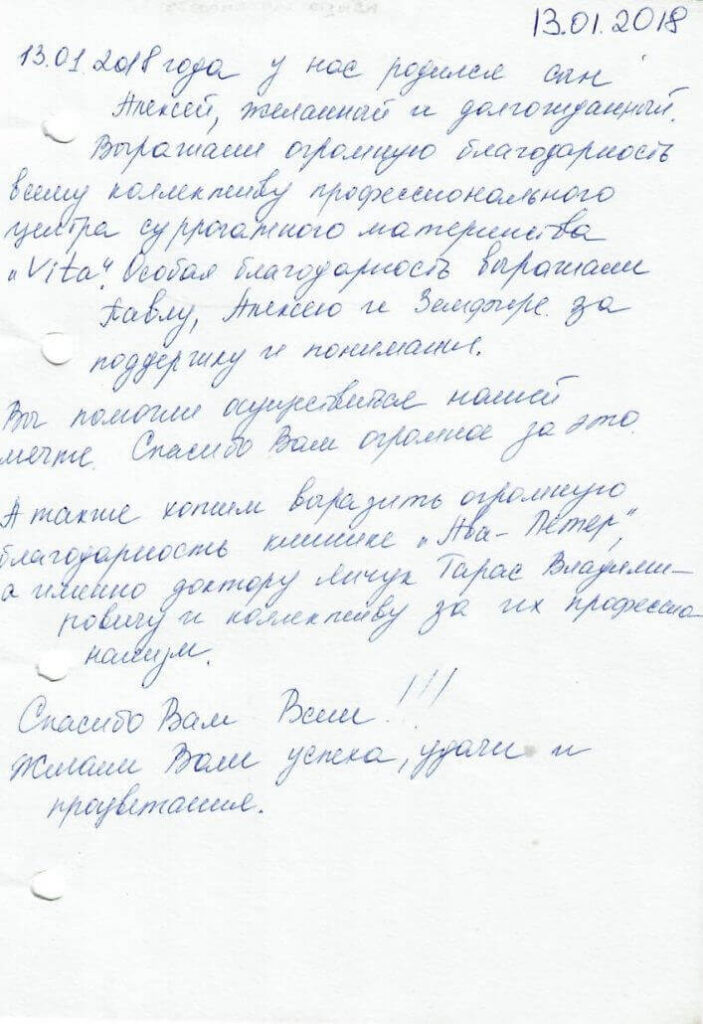 13.01.2018
13.01.2018 года у нас родился сын
Алексей, желанный и долгожданный.
Выражаем огромную благодарность
всему коллективу профессионального
центра суррогатного материнства
„Vita“. Особая благодарность выражаем
Павлу, Алексею и Земфире за
поддержку и понимание.
Вы помогли осуществится нашей
мечте. Спасибо Вам огромное за это.
А также хотим выразить огромную
благодарность клинике „Ава-Петер“,
а именно доктору Яичук Тарас Владими-
ровичу и коллективу за их професси-
нализм.
Спасибо Вам Всем!!!
Желаем Вам успеха, удачи и
процветания.